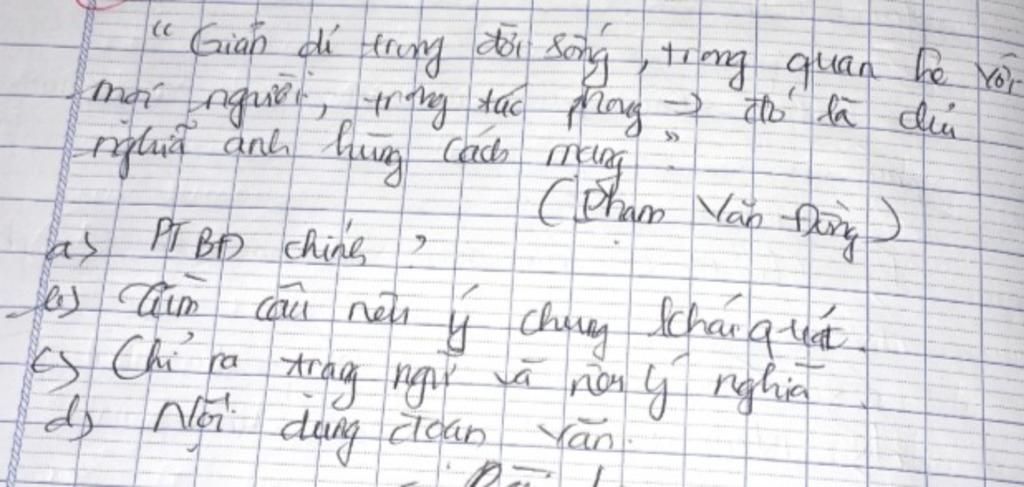 “ Giản dị trong đời sống, trong quan hệ với
mọi người, trong tác phong → đó là chủ
nghĩa anh hùng cách mạng ”
(Phạm Văn Đồng)
a) PTBĐ chính ?
b) Tìm câu nêu ý chung khái quát.
c) Chỉ ra trạng ngữ và nêu ý nghĩa
d) Nội dung đoạn văn.